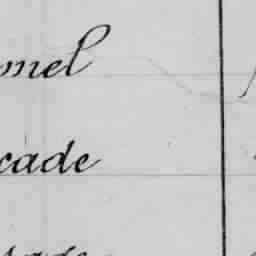 mel
cade